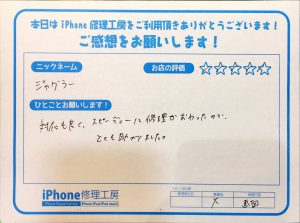 本日は iPhone 修理工房をご利用頂きありがとうございます！
ご感想をお願いします！
ニックネーム
お店の評価
ジャグラー
☆☆☆☆☆
ひとことお願いします！
対応も良く、スピーディーに修理がおわったので、
とても助かりました。
iPhone修理工房